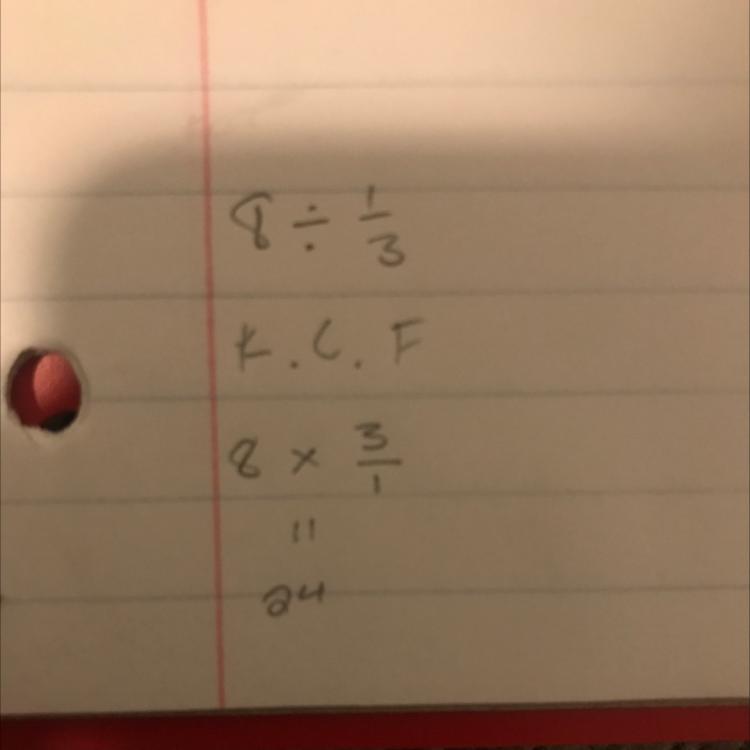 8 ÷ 1/3
K.C.F
8 × 3/1
=
24